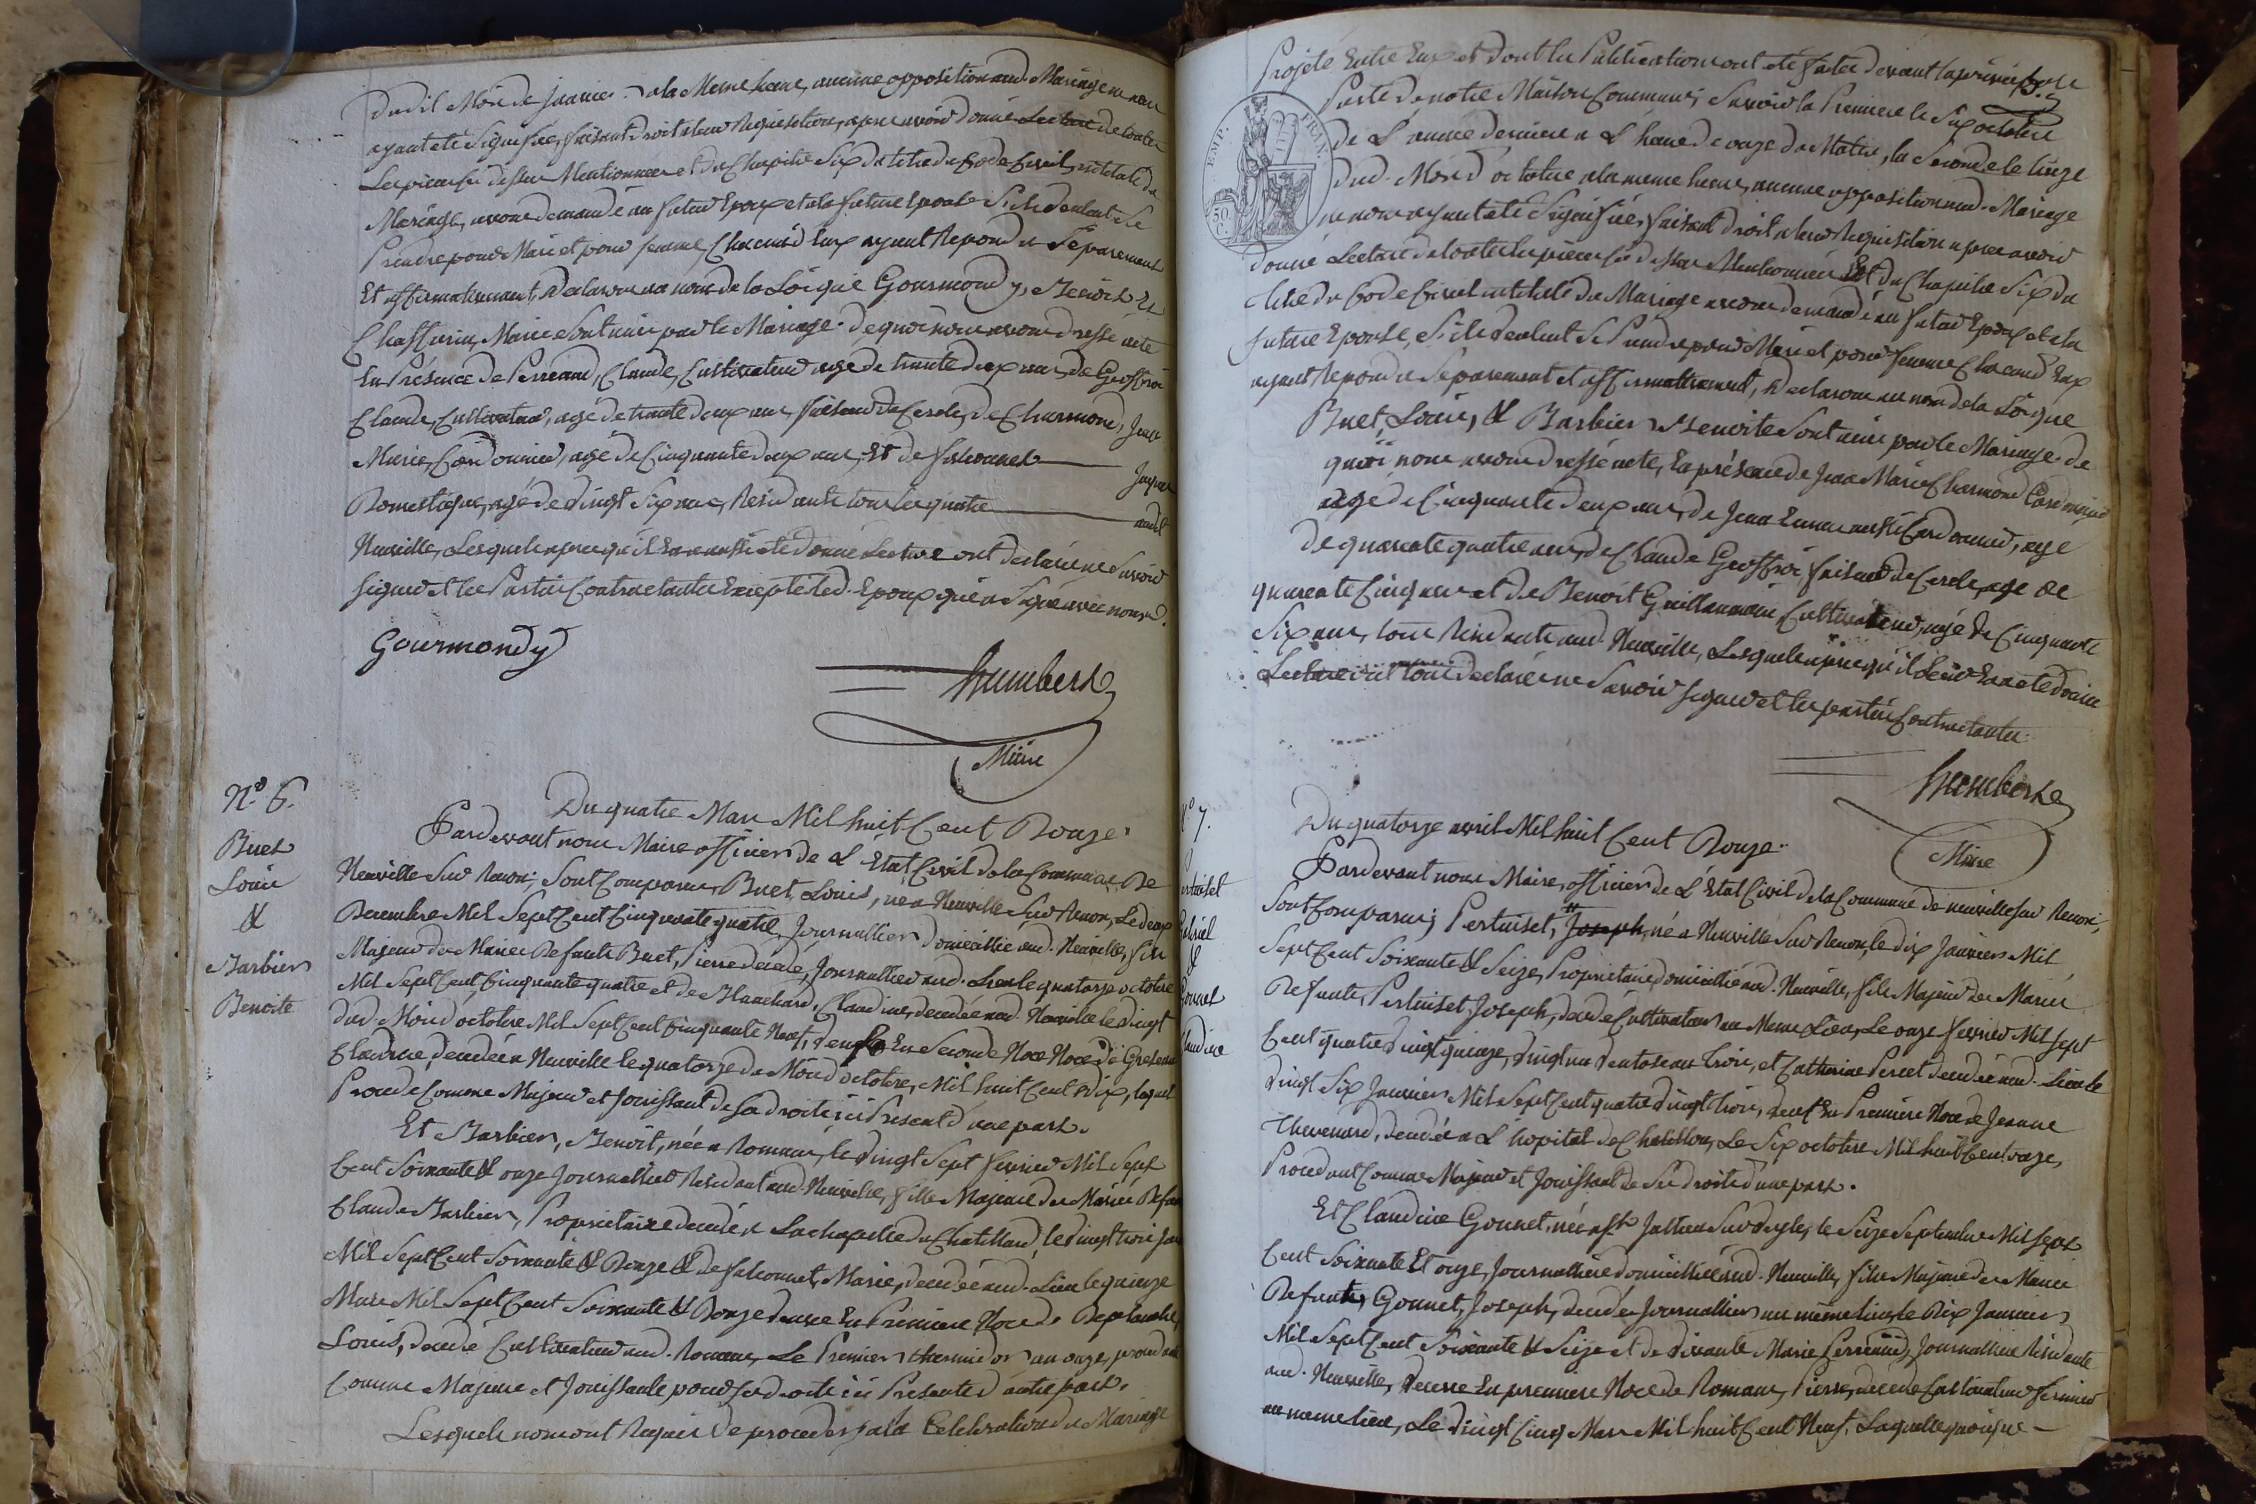 Dudit Mois de janvier a la Meme heure, aucune opposition aud. Mariage ne nous
ayant eté Signifiée, faisant droit a leur Requisition, apres avoir donné Lecture de toutes
Les pieces ci dessus Mentionnées et du Chapitre Six du titre du Code Civil, intitulé du
Mariage, avons demandé au futur Epoux et a la future Epouse Si ils veulent Se
Prendre pour Mari et pour femme, Chacun d'Eux ayant Repondu Séparement
Et affirmativement, Declarons au nom de la Loi que Gourmondy, Benoit Et
Chaffurin, Marie Sont unis par le Mariage. de quoi nous avons dressé acte
En Présence de Perreaud, Claude, Cultivateur agé de trente deux ans, de Geoffroi
Claude, Cultivateur, agé de trente deux ans, faiseur de Cercle, de Charmond, Jean
Marie, Cordonnier, agé de Cinquante deux ans, Et de falconnet Jacques
Domestique, agé de vingt Six ans, Residants tous les quatre aud.
Neuville, Lesquels apres qu'il En a aussi eté donné Lecture ont declaré ne Savoir
Signer et les Parties Contractantes Excepté led. Epoux qui a Signé avec nous.
Gourmondy
Humbert
Maire
N.º 6.
Buet
Louis
&
Barbier
Benoite
Du quatre Mars Mil huit Cent Douze.
Pardevant nous Maire officier de L'Etat Civil de la Commune De
Neuville Sur Renon; Sont Comparus, Buet, Louis, né a Neuville Sur Renon, Le deux
Decembre Mil Sept Cent Cinquante quatre, Journallier Domicillié aud. Neuville, fils
Majeur de Mariés Defunts Buet, Pierre decedé, Journallier aud. Lieu le quatorze octobre
Mil Sept Cent Cinquante quatre et de Blanchard, Claudine, decedée aud. Neuville le vingt
dud. Mois d'octobre Mil Sept Cent Cinquante Neuf, veuf En Seconde Noce de
Claudine, decedée a Neuville le quatorze du Mois d'octobre, Mil huit Cent Dix, lequel
Procede Comme Majeur et Jouissant de Ses droits ici Present d'une part.
Et Barbier, Benoit, née a Romans, le vingt Sept fevrier Mil Sept
Cent Soixante & onze Journalliere Residant aud. Neuville, fille Majeure de Mariés Defunts
Claude Barbier, Proprietaire decedé a Lachapelle du Chatelard, le vingt trois
Mil Sept Cent Soixante & Douze & de falconnet, Marie, decedée aud. Lieu le quinze
Mars Mil Sept Cent Soixante & Douze veuve En Premiere Noce de
Louis, decedé Cultivateur aud. Romans, Le Premier thermidor an onze, procedante
Comme Majeure et Jouissante pour Ses droits ici Presente d'autre part.
Lesquels nous ont Requis De proceder a la Celebration du Mariage
Projeté Entre Eux et dont les Publications ont eté faites devant la principale
Porte de notre Maison Commune; Savoir la Premiere le Six octobre
de L'année derniere a L'heure de onze du Matin, la Seconde le treize
dud. Mois d'octobre a la meme heure, aucune opposition aud. Mariage
ne nous ayant eté Signifiée, faisant droit a leur Requisition apres avoir
donné Lecture de toutes les pieces ci dessus Mentionnées Et du Chapitre Six du
titre du Code Civil intitulé du Mariage avons demandé au futur Epoux et a la
future Epouse, Si ils veulent Se Prendre pour Mari et pour femme Chacun d'Eux
ayant Repondu Séparement et affirmativement, Declarons au nom de la Loi que
Buet, Louis, & Barbier Benoite Sont unis par le Mariage. de
quoi nous avons dressé acte, En présence de Jean Marie Charmond Cordonnier
agé de Cinquante deux ans, de Jean aussi Cordonnier, agé
de quarante quatre ans, de Claude Geoffroi, faiseur de Cercle, agé de
quarante Cinq ans et de Benoit Guillaumain, Cultivateur, agé de Cinquante
Six ans, tous Residants aud. Neuville, Lesquels apres qu'il Leur En a eté donné
Lecture ont tous declaré ne Savoir Signer et les parties Contractantes.
Humbert
Maire
Nº 7.
Pertuiset
Gabriel
&
Gonnet
Claudine
Du quatorze avril Mil huit Cent Douze.
Pardevant nous Maire, officier de L'Etat Civil de la Commune de neuville Sur Renon;
Sont Comparus; Pertuiset, Joseph, né a Neuville Sur Renon, le dix Janvier Mil
Sept Cent Soixante & Seize, Proprietaire domicillié aud. Neuville, fils Majeur de Mariés
Defunts, Pertuiset, Joseph, decedé Cultivateur au Meme Lieu, Le onze fevrier Mil Sept
Cent quatre vingt quinze, vingt un ventose an trois, et Catherine Perret decedée aud. Lieu le
vingt Six Janvier Mil Sept Cent quatre vingt trois, veuf En Premiere Noce de Jeanne
Thevenard, decedée a L'hopital de Chatillon, Le Six octobre Mil huit Cent onze,
Procedant Comme Majeur et Jouissant de Ses droits d'une part.
Et Claudine Gonnet, née a St. Julien Sur Veyle, le Seize Septembre Mil Sept
Cent Soixante Et onze, Journalliere domicilliée aud. Neuville, fille Majeure de Mariés
Defunts, Gonnet, Joseph, decedé Journallier au même lieu, le Dix Janvier
Mil Sept Cent Soixante & Seize et de vivante Marie Perraud, Journalliere Residante
aud. Neuville, veuve En premiere Noce de Romans, Pierre, decedé Cultivateur fermier
au meme lieu, Le vingt Cinq Mars Mil huit Cent Neuf. Laquelle quoique
EMP. FRAN.
50. C.